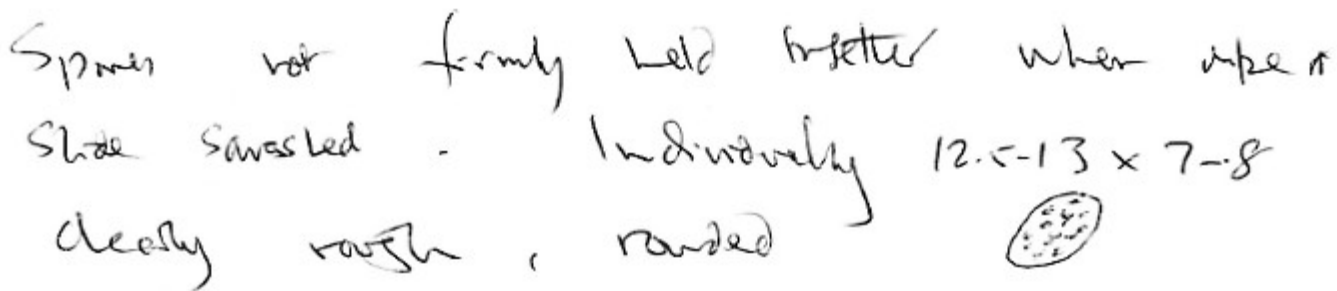 Spores not firmly held together when ripe &
Slide squashed. Individually 12.5-13 x 7-8
Clearly rough, rounded